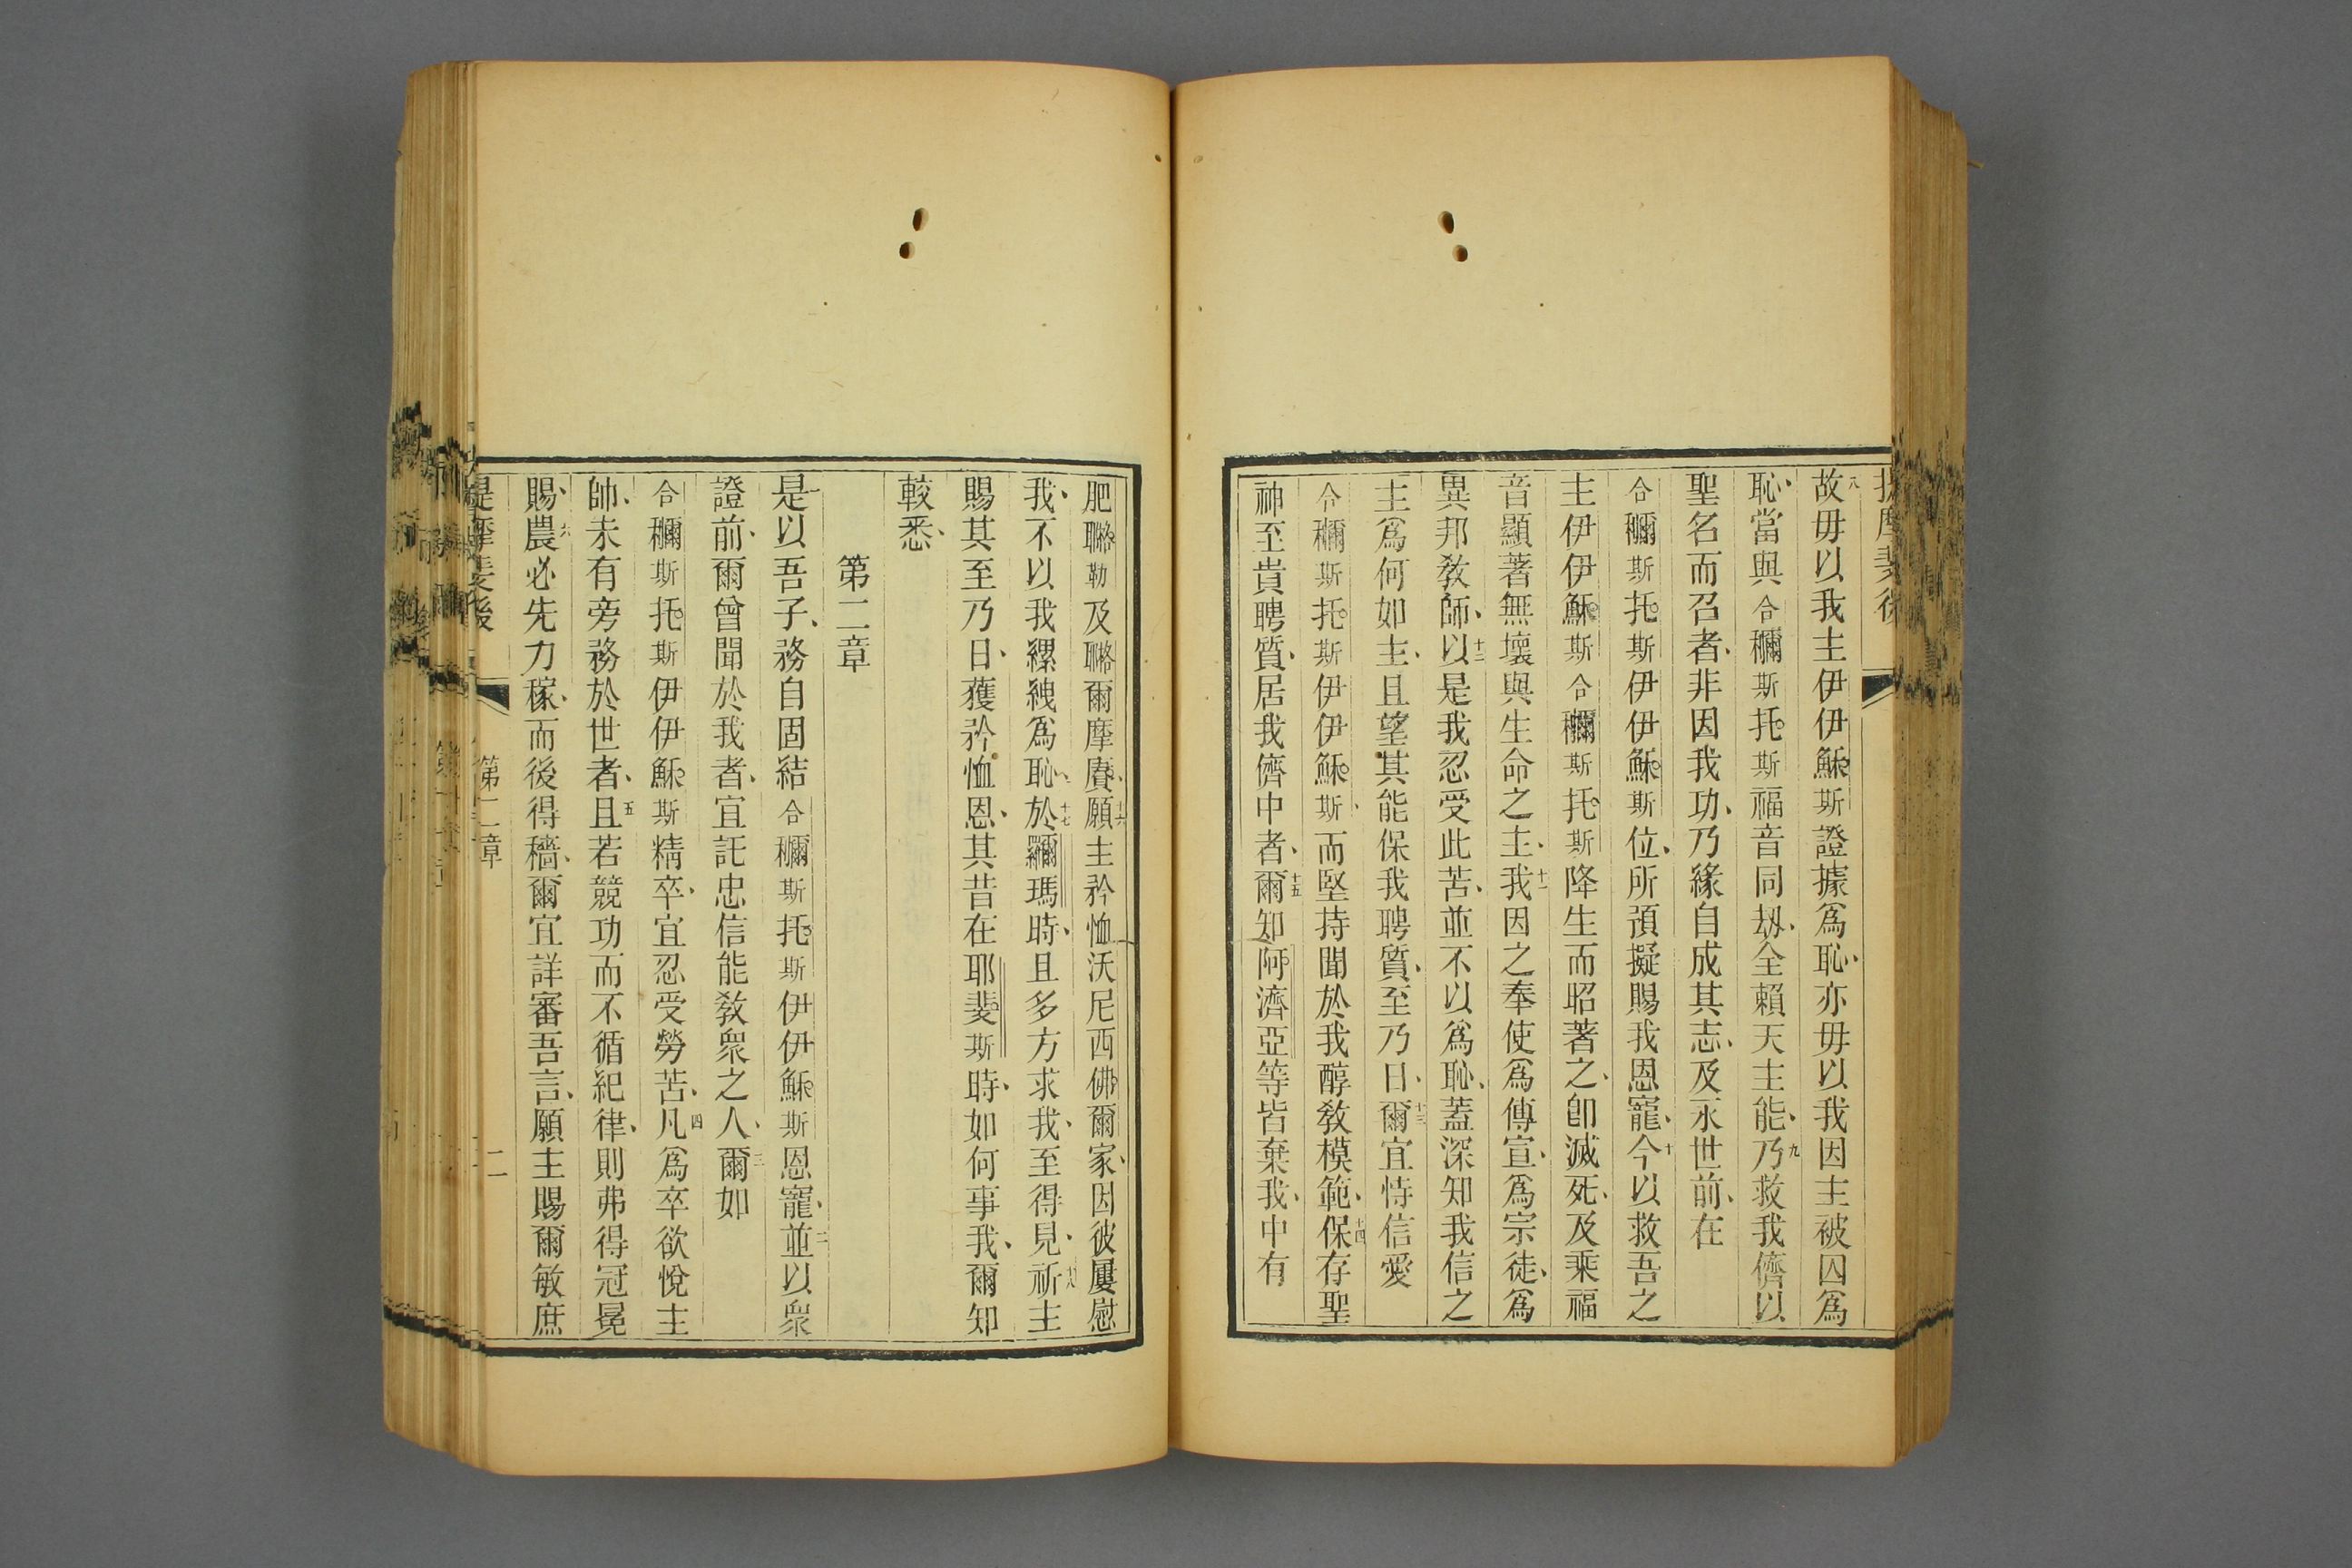 提摩斐後
故毋以我主伊伊穌斯證據爲恥亦毋以我因主被囚爲
恥當與合穪斯托斯福音同刼全賴天主能乃救我儕以
聖名而召者非因我功乃緣自成其志及永世前在
合穪斯托斯伊伊穌斯位所預擬賜我恩寵今以救吾之
主伊伊穌斯合穪斯托斯降生而昭著之卽滅死及乘福
音顯著無壞與生命之主我因之奉使爲傳宣爲宗徒爲
異邦敎師以是我忍受此苦並不以爲恥蓋深知我信之
主爲何如主且望其能保我聘質至乃日爾宜恃信愛
合穪斯托斯伊伊穌斯而堅持聞於我醇敎模範保存聖
神至貴聘質居我儕中者爾知阿濟亞等皆棄我中有
肥勒及爾摩願主矜恤沃尼西佛爾家因彼屢慰
我不以我縲絏爲恥於瑪時且多方求我至得見祈主
賜其至乃日獲矜恤恩其昔在耶斐斯時如何事我爾知
較悉
第二章
是以吾子務自固結合穪斯托斯伊伊穌斯恩寵並以衆
證前爾曾聞於我者宜託忠信能敎衆之人爾如
合穪斯托斯伊伊穌斯精卒宜忍受勞苦凡爲卒欲悅主
帥未有旁務於世者且若競功而不循紀律則弗得冠冕
賜農必先力稼而後得穡爾宜詳審吾言願主賜爾敏庶
提摩斐後 第二章 二